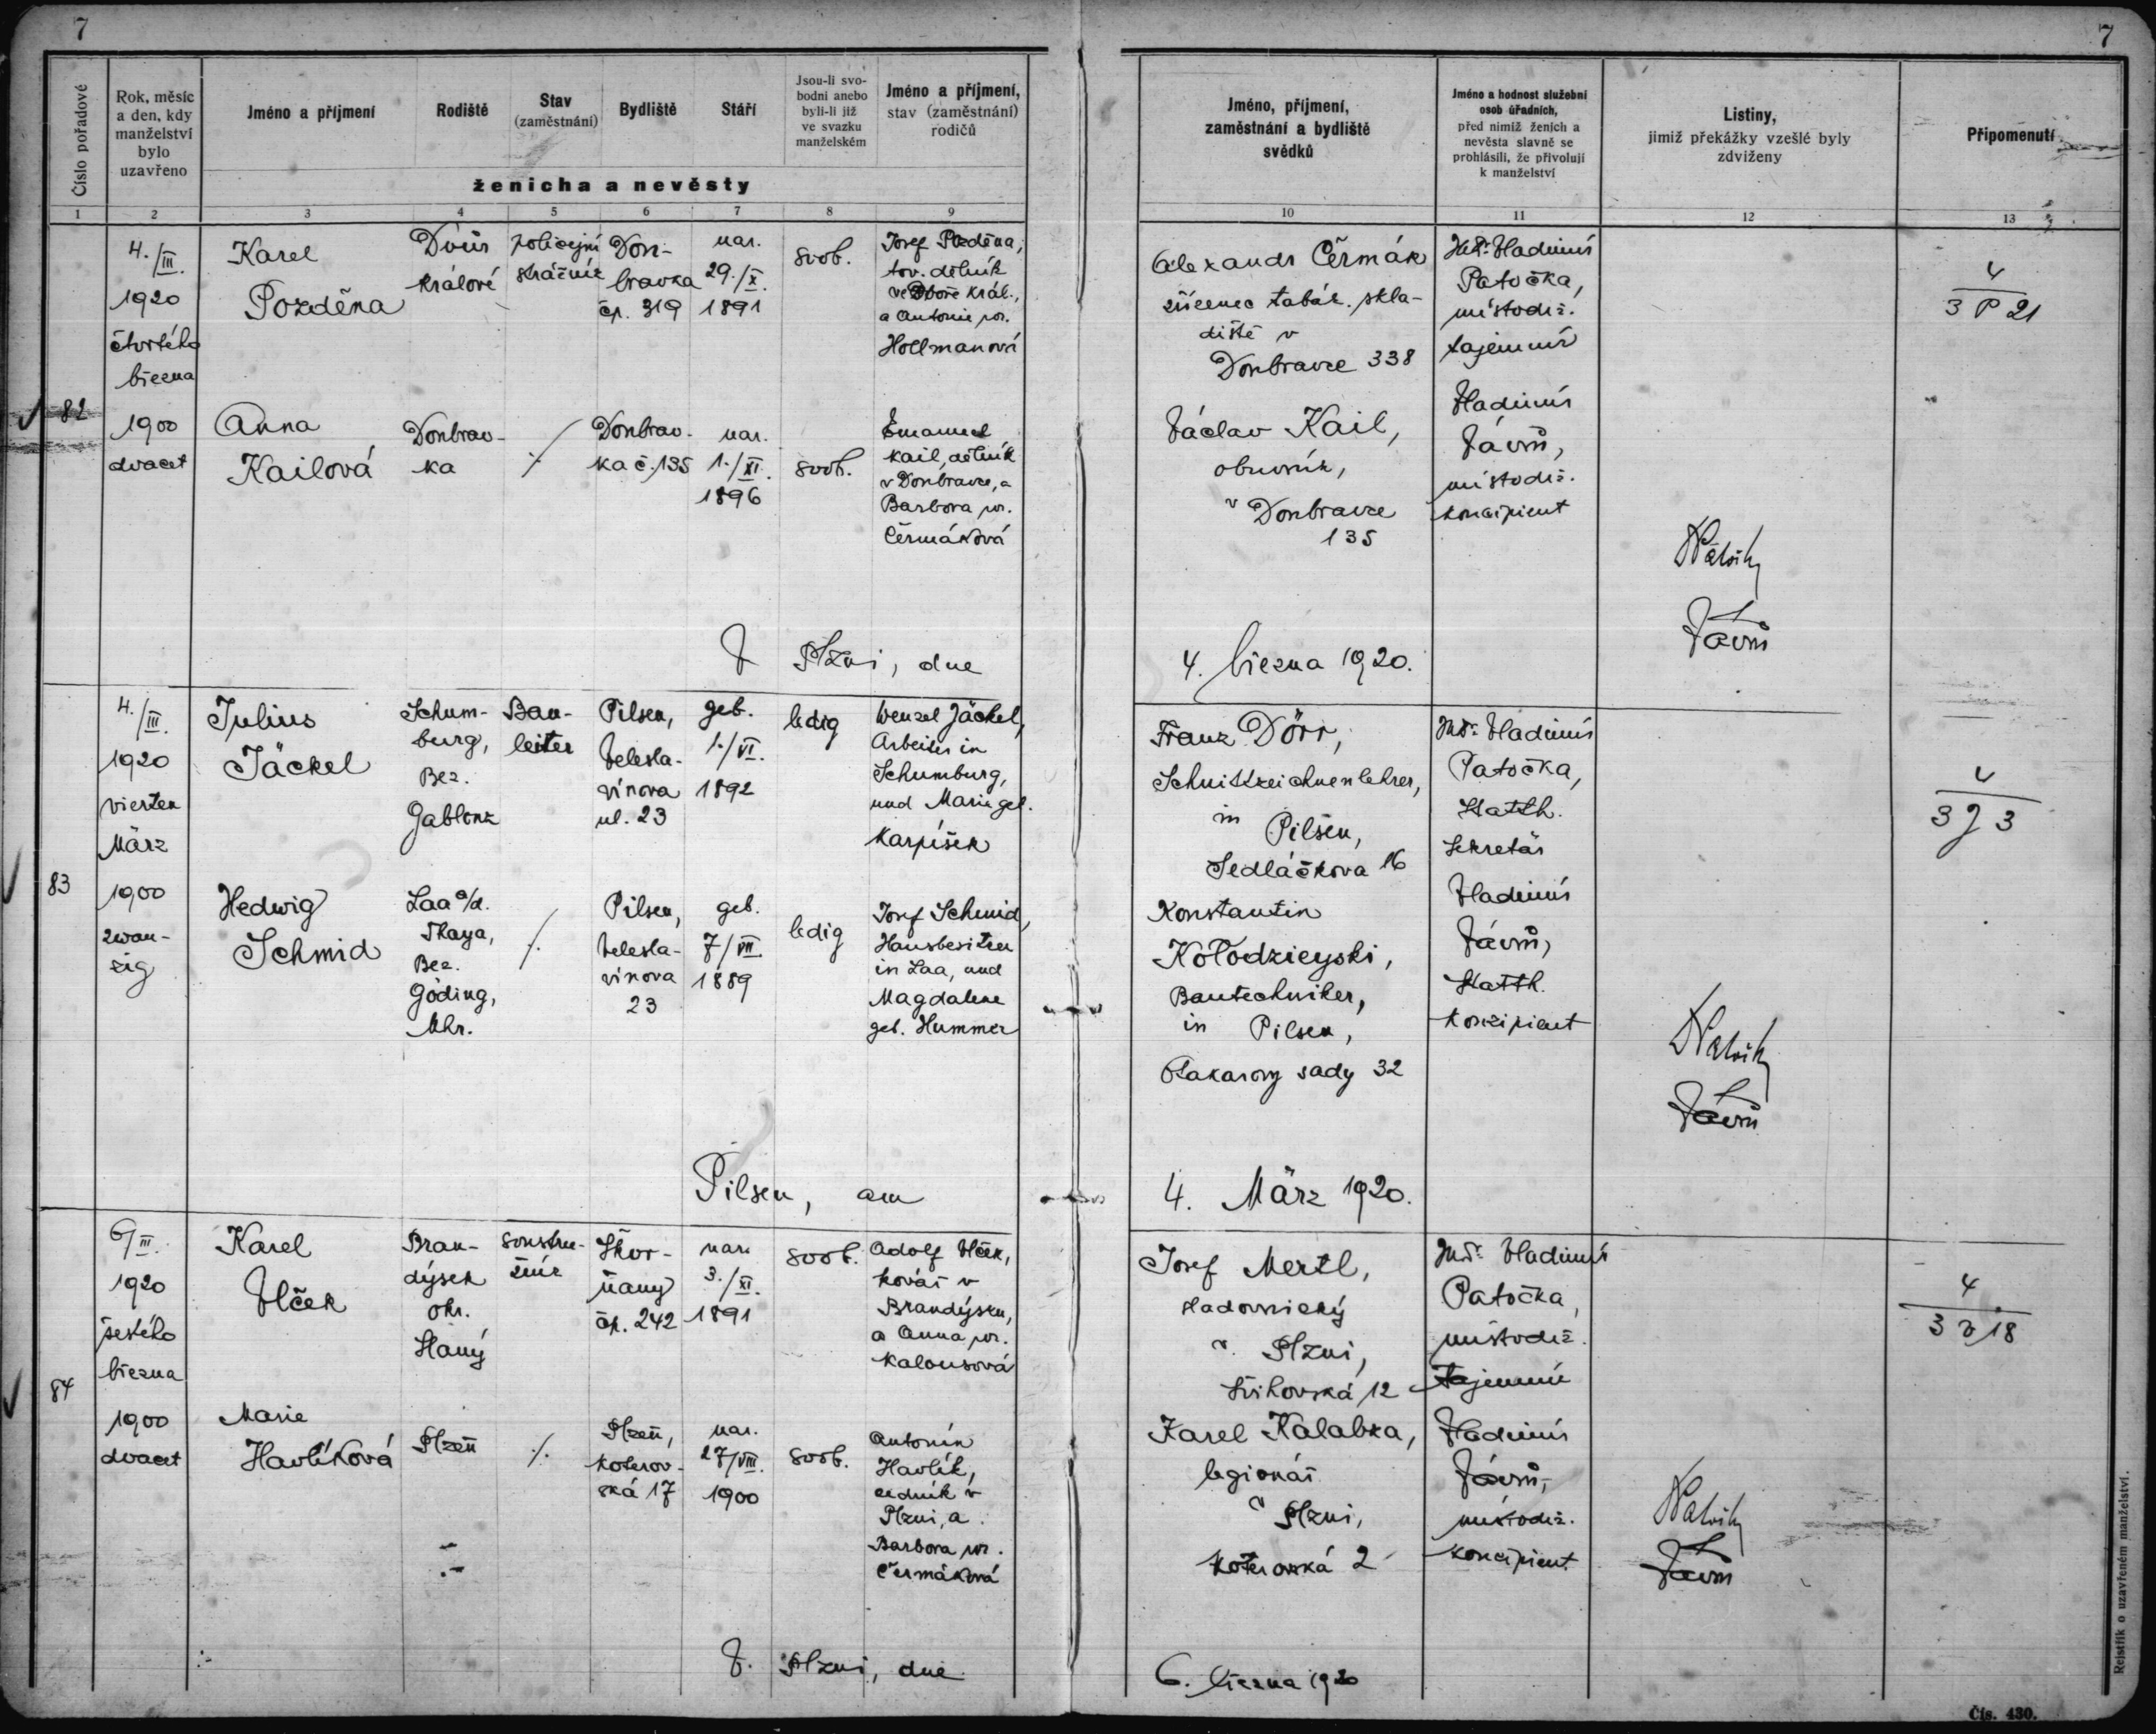 7
7
Číslo pořadové
Rok, měsíc
a den, kdy
manželství
bylo
uzavřeno
Jméno a příjmení
Rodiště
Stav
(zaměstnání)
Bydliště
Stáří
Jsou-li svo-
bodni anebo
byli-li již
ve svazku
manželském
Jméno a příjmení,
stav (zaměstnání)
rodičů
ženicha a nevěsty
Jméno, příjmení,
zaměstnání a bydliště
svědků
Jméno a hodnost služební
osob úřadních,
před nimiž ženich a
nevěsta slavně se
prohlásili, že přivolují
k manželství
Listiny,
jimiž překážky vzešlé byly
zdviženy
Připomenutí
1
2
3
4
5
6
7
8
9
10
11
12
13
82
4./III.
1920
čtvrtého
března
1900
dvacet
Karel
Pozděna
Dvůr
Králové
policejní
strážník
Dou-
bravka
čp. 319
nar.
29./X.
1891
svob.
Josef Pozděna,
tov. dělník
ve Dvoře Král.,
a Antonie roz.
Hollmanová
Anna
Kailová
Doubrav-
ka
./.
Doubrav-
ka č. 135
nar.
1./XI.
1896
svob.
Emanuel
Kail, dělník
v Doubravce, a
Barbora roz.
Čermáková
Alexandr Čermák
zřízenec tabák. skla-
diště v
Doubravce 338
Václav Kail,
obuvník,
v Doubravce
135
JUDr. Vladimír
Patočka,
místodrž.
tajemník
Vladimír
Vávrů,
místodrž.
koncipient
Vávrů
4
3 P 21
V Plzni, dne
4. března 1920.
83
4./III.
1920
vierten
März
1900
zwan-
zig
Julius
Jäckel
Schum-
burg,
Bez.
Gablonz
Bau-
leiter
Pilsen,
Velesla-
vínova
ul. 23
geb.
1./VI.
1892
ledig
Wenzel Jäckel,
Arbeiter in
Schumburg,
und Marie geb.
Karpíšek
Hedwig
Schmid
Laa a/d.
Thaya,
Bez.
Göding,
Mhr.
./.
Pilsen,
Velesla-
vínova
23
geb.
7/VII.
1889
ledig
Josef Schmid,
Hausbesitzer
in Laa, und
Magdalene
geb. Hummer
Franz Dörr,
Schnittzeichnenlehrer,
in Pilsen,
Sedláčkova 16
Konstantin
Kołodzieyski,
Bautechniker,
in Pilsen,
Otakarovy sady 32
JUDr. Vladimír
Patočka,
Statth.
Sekretär
Vladimír
Vávrů,
Statth.
Konzipient
Vávrů
4
3 J 3
Pilsen, am
4. März 1920.
84
6/III.
1920
šestého
března
1900
dvacet
Karel
Vlček
Bran-
dýsek
okr.
Slaný
soustru-
žník
Skvr-
ňany
čp. 242
nar.
3./XI.
1891
svob.
Adolf Vlček,
kovář v
Brandýsku,
a Anna roz.
Kalousová
Marie
Havlíková
Plzeň
./.
Plzeň,
Koterov-
ská 17
nar.
27/VIII.
1900
svob.
Antonín
Havlík,
zedník v
Plzni, a
Barbora roz.
Čermáková
Josef Mertl,
sladovnický
v Plzni,
Švihovská 12
Karel Kalabza,
legionář
v Plzni,
Koterovská 2
JUDr. Vladimír
Patočka,
místodrž.
tajemník
Vladimír
Vávrů,
místodrž.
koncipient
Vávrů
4
3 V 18
V Plzni, dne
6. března 1920
Rejstřík o uzavřeném manželství.
Čís. 430.